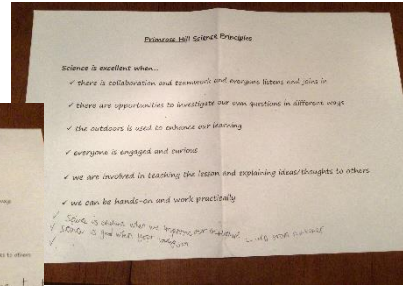 Primrose Hill Science Principles
Science is excellent when...
✓ there is collaboration and teamwork and everyone listens and joins in
✓ there are opportunities to investigate our own questions in different ways
✓ the outdoors is used to enhance our learning
✓ everyone is engaged and curious
✓ we are involved in teaching the lesson and explaining ideas/thoughts to others
✓ we can be hands-on and work practically
✓ is when we
✓ is good when your
✓
ways
to others